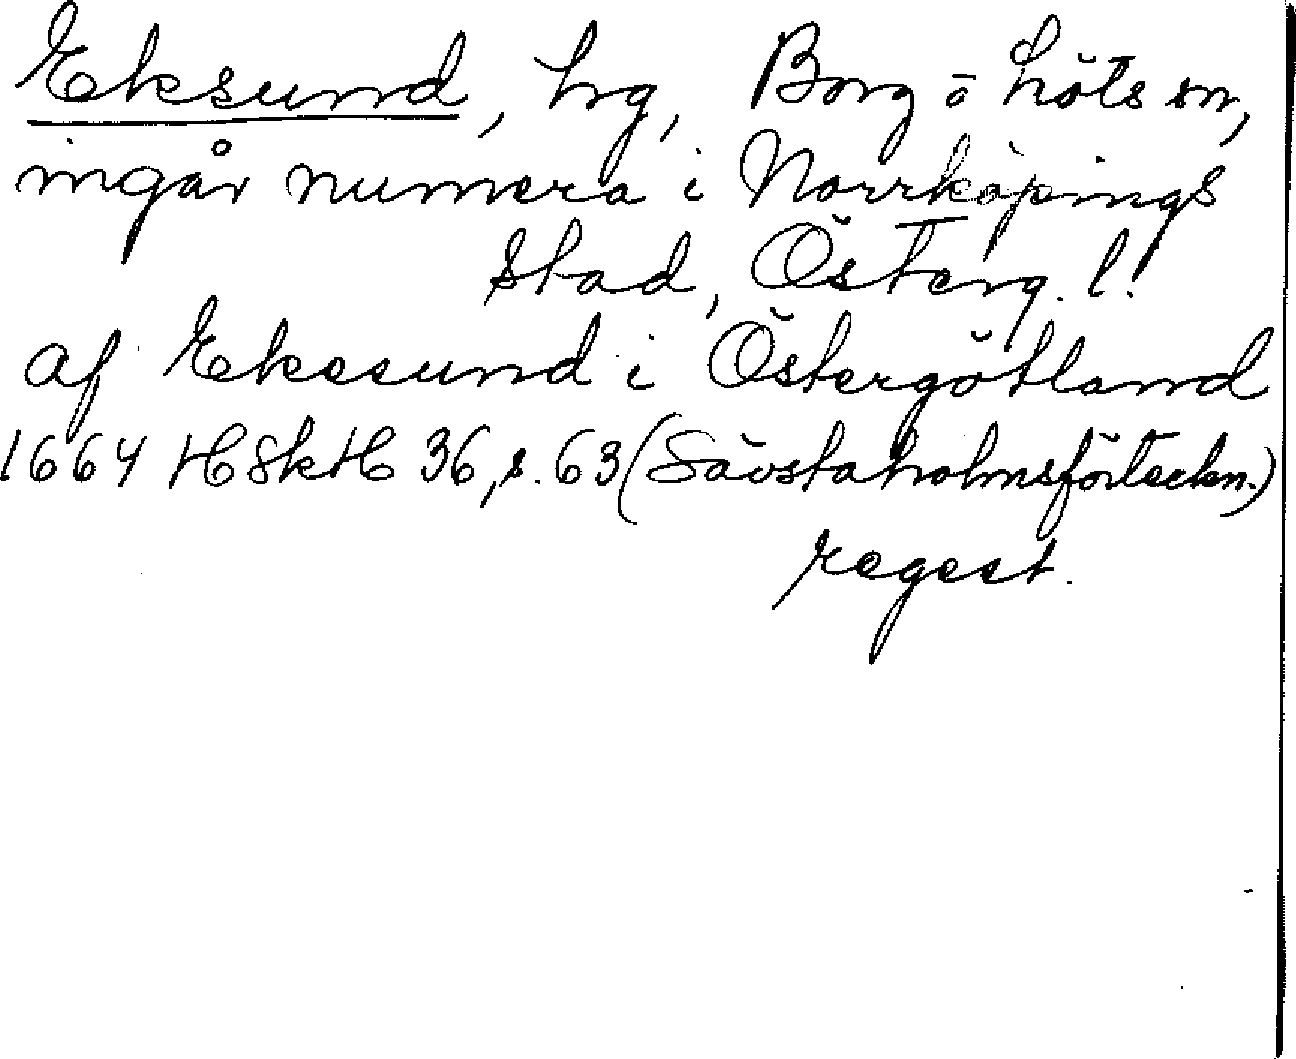 Eksund, hg, Borg o Löts sn,
ingår numera i Norrköpings
stad, Österg. l.
af Ekesund i Östergötland
1664 HSkH 36, s. 63 (Sävstaholmsförteckn.)
regest.